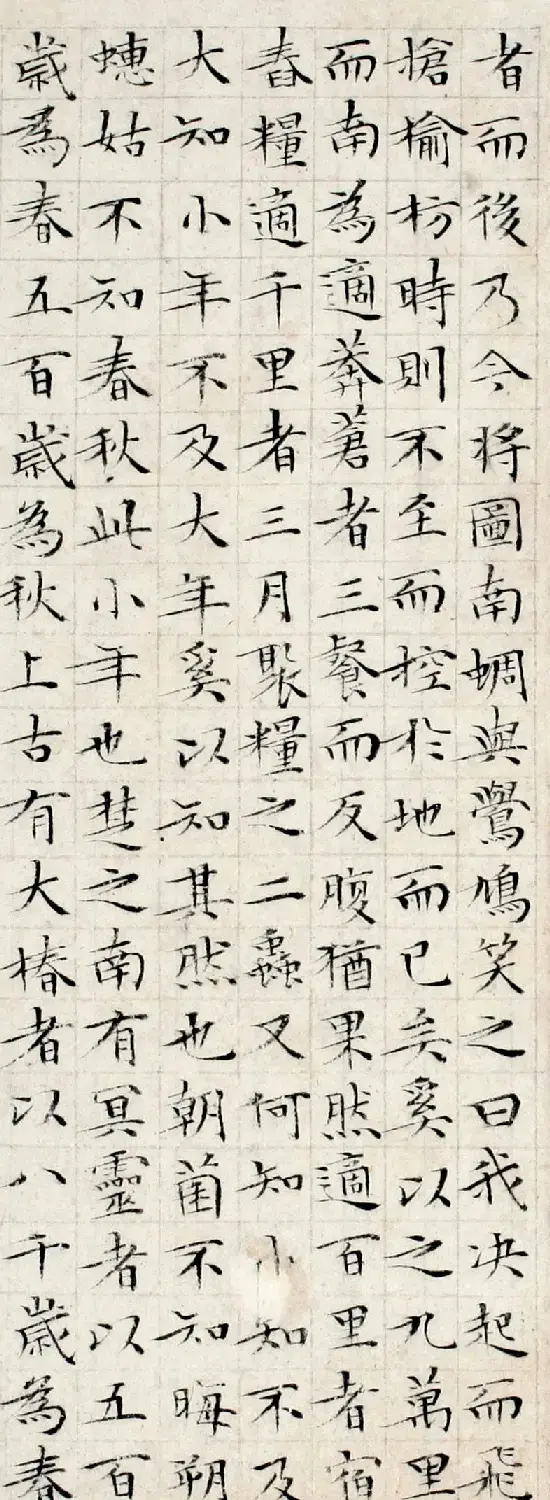 者而後乃今將圖南蜩與鷽鳩笑之曰我决起而飛
搶榆枋時則不至而控於地而已矣奚以之九萬里
而南為適莽蒼者三餐而反腹猶果然適百里者宿
舂糧適千里者三月聚糧之二蟲又何知小知不及
大知小年不及大年奚以知其然也朝菌不知晦朔
蟪姑不知春秋此小年也楚之南有冥靈者以五百
歲為春五百歲為秋上古有大椿者以八千歲為春